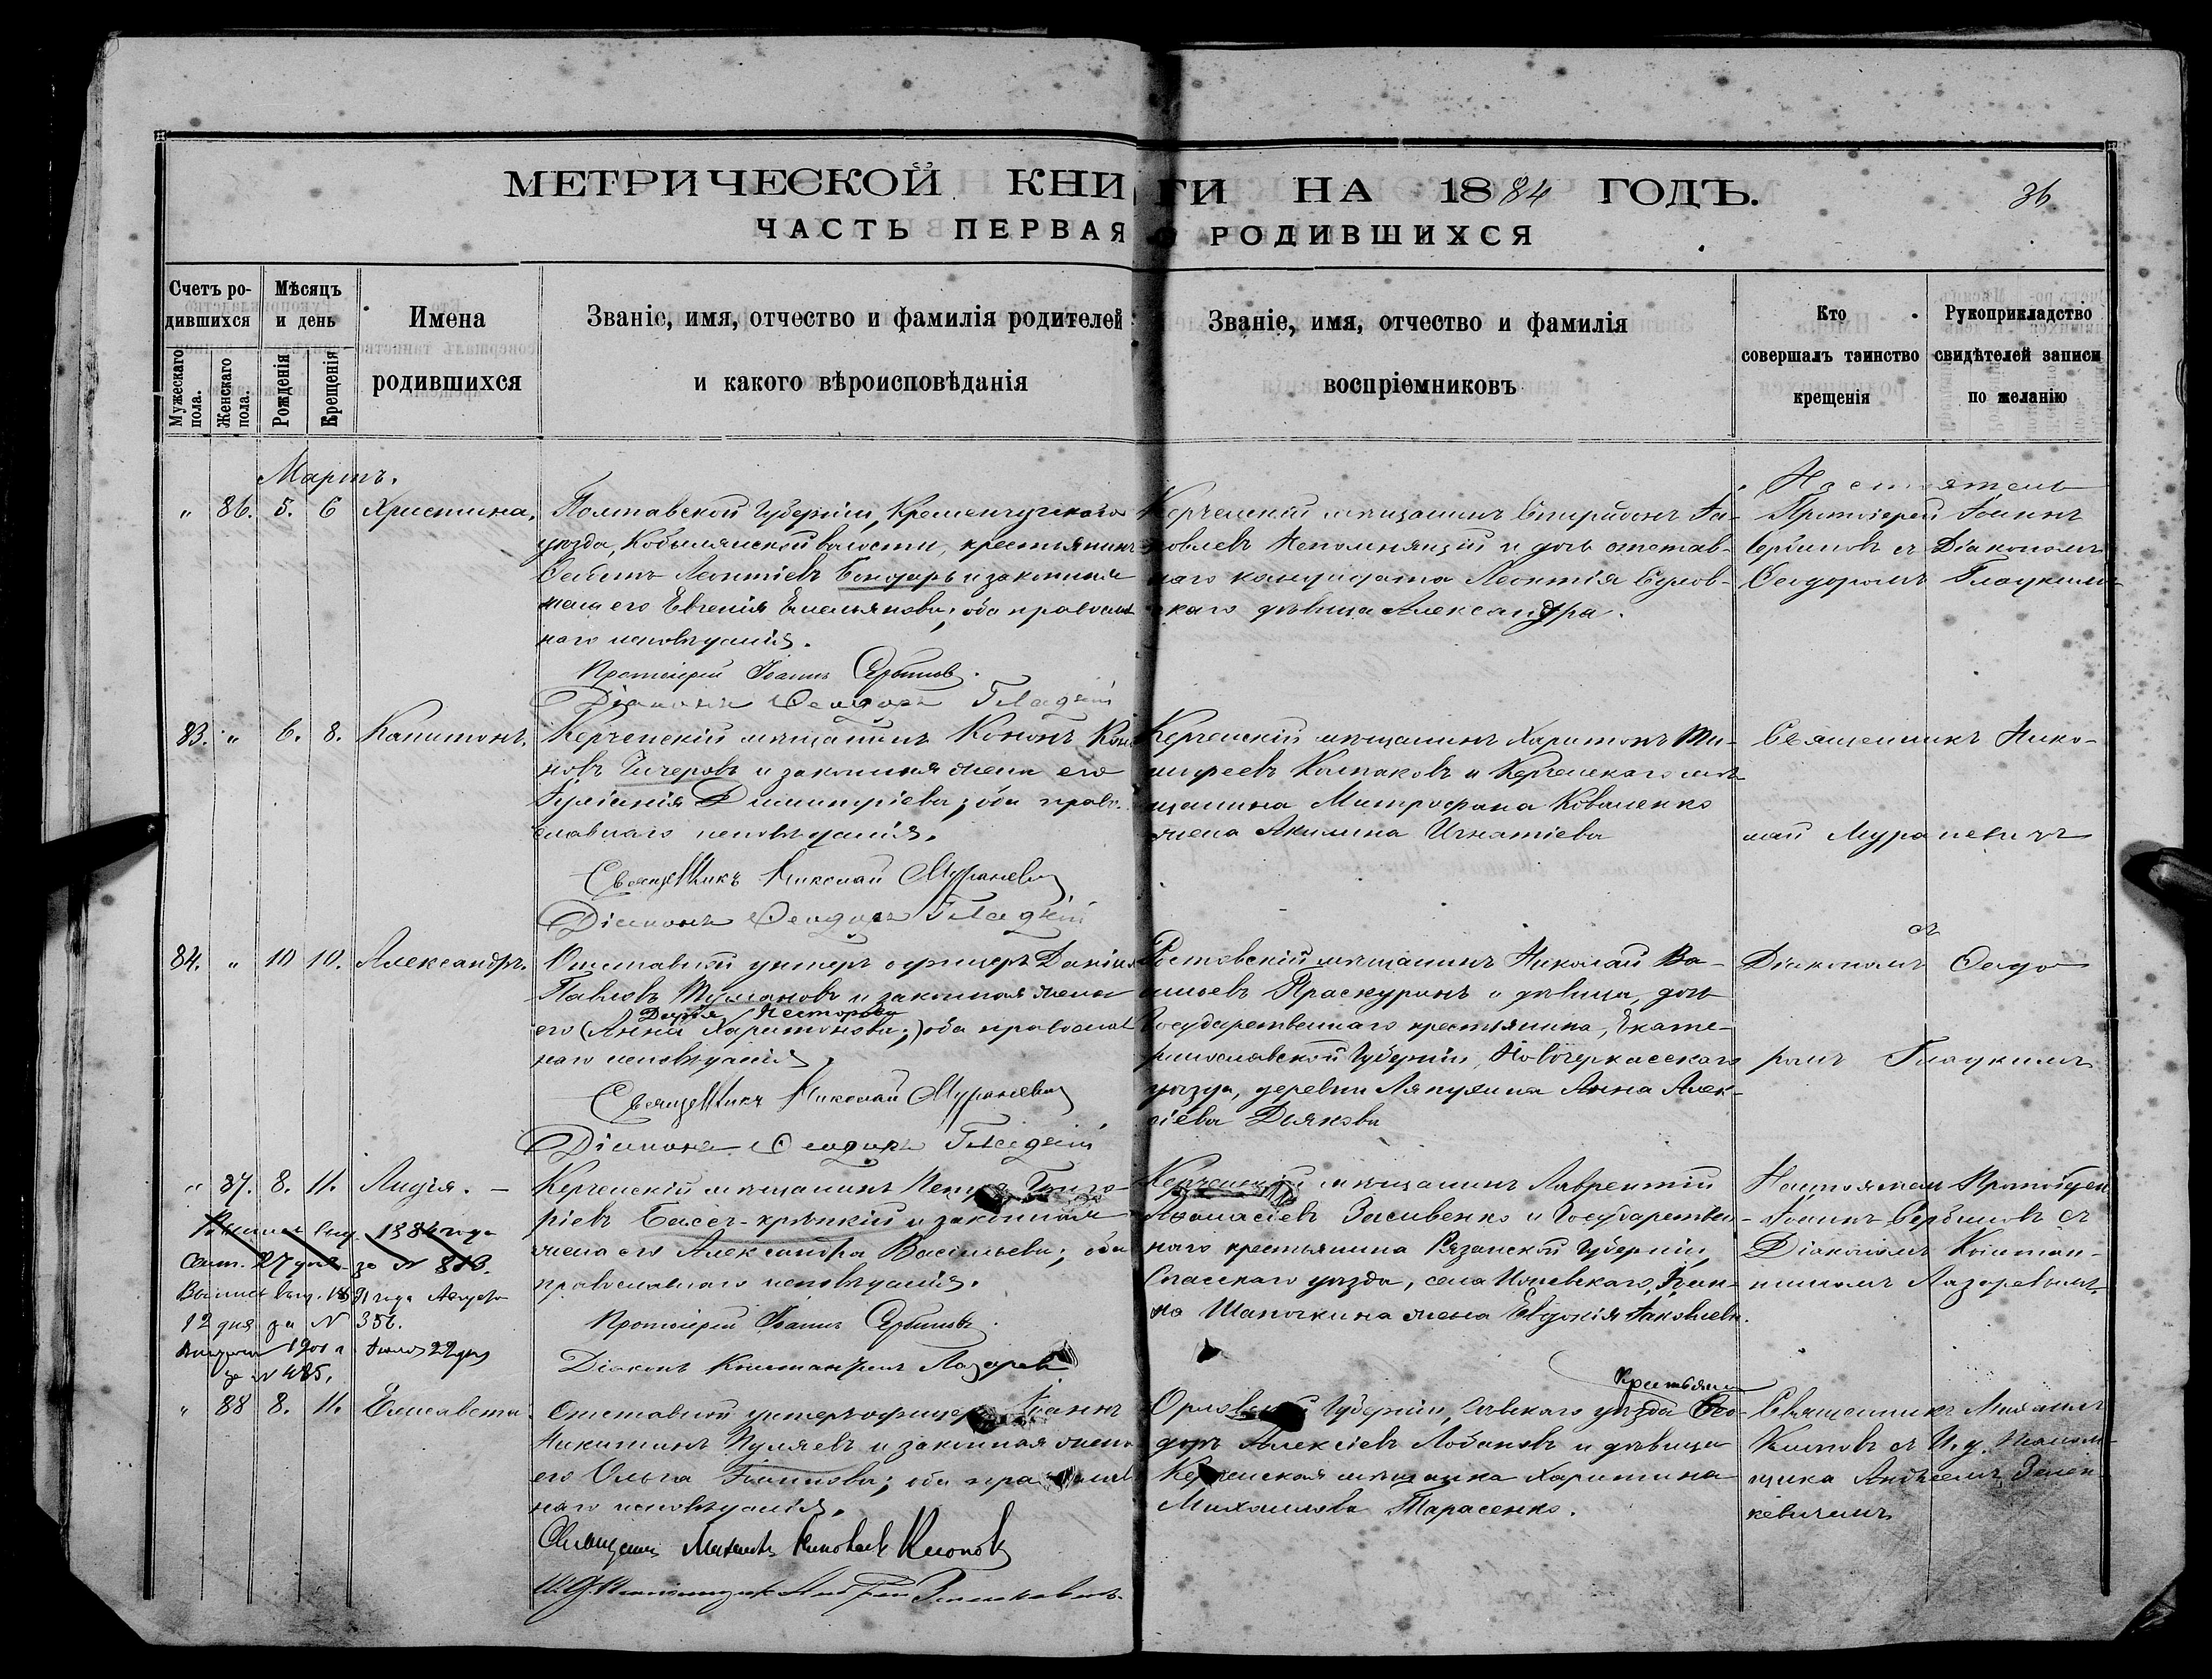 МЕТРИЧЕСКОЙ КНИГИ НА 1884 ГОДЪ.
36
ЧАСТЬ ПЕРВАЯ О РОДИВШИХСЯ
Счетъ родившихся
Мужескаго пола.
Женскаго пола.
Мѣсяцъ и день
Рожденія
Крещенія
Имена родившихся
Званіе, имя, отчество и фамилія родителей
и какого вѣроисповѣданія
Званіе, имя, отчество и фамилія
воспріемниковъ
Кто
совершалъ таинство
крещенія
Рукоприкладство
свидѣтелей записи
по желанію
Мартъ.
" 86. 5. 6 Христина.
Полтавской Губерніи, Кременчугскаго
уѣзда, волости, крестьянинъ
Леонтіевъ Бондарь и законная
жена его Евгенія Емельянова; оба православ
наго исповѣданія.
Протоіерей Іоаннъ Сербиновъ.
Діаконъ Ѳеодоръ Гладкій
Керченскій мѣщанинъ Спиридонъ Іа-
ковлевъ Непомнящій и дочь отстав-
наго кандидата Леонтія
дѣвица Александра.
Настоятель
Протоіерей Іоаннъ
Сербиновъ съ Діакономъ
Ѳеодоромъ Гладкимъ
83. " 6. 8. Капитонъ.
Керченскій мѣщанинъ Кононъ Коно
новъ Чичеровъ и законная жена его
Іуліанія Димитріева; оба право-
славнаго исповѣданія.
Священникъ Николай Мураневичъ
Діаконъ Ѳеодоръ Гладкій
Керченскій мѣщанинъ Харитонъ Ти-
моѳеевъ Колпаковъ и Керченскаго мѣ
щанина Митрофана Коваленко
жена Акилина Игнатіева
Священникъ Нико-
лай Мураневичъ
84. " 10 10. Александръ.
Отставной унтеръ офицеръ Даніилъ
Павловъ Тумановъ и законная жена
Дарія Несторова
его (Анна Харитонова;) оба православ
наго исповѣданія,
Священникъ Николай Мураневичъ
Діаконъ Ѳеодоръ Гладкій
Ростовскій мѣщанинъ Николай Ва-
сильевъ Праскуринъ и дѣвица, дочь
Государственнаго крестьянина, Екате-
ринославской Губерніи, Новочеркасскаго
уѣзда, деревни Ляпухина Анна Алек-
сіева Дьякова
съ
Діакономъ Ѳеодо
ромъ Гладкимъ
" 87. 8. 11. Лидія. -
Керченскій мѣщанинъ Григо-
ріевъ и законная
жена его Александра Васильева; оба
православнаго исповѣданія.
Протоіерей Іоаннъ Сербиновъ.
Діаконъ Константинъ Лазаревъ
Керченскій мѣщанинъ Лаврентій
Аѳанасіевъ Засивенко и Государствен-
наго крестьянина Рязанской Губерніи,
Спасскаго уѣзда, села
Шапочкина жена Евдокія Іаковлева.
Настоятель Протоіерей
Іоаннъ Сербиновъ съ
Діакономъ Констан-
тиномъ Лазаревымъ.
1884 года
Сент. 27 дня за № 813.
Выпись выд. 1891 года Августа
12 дня за № 356.
1901 г. Іюля 22 дня
за № 485.
" 88 8. 11. Елисавета.
Отставной унтеръ-офицеръ Іоаннъ
Никитинъ Пуляевъ и законная жена
его Ольга Филиппова; оба православ
наго исповѣданія,
Священникъ Михаилъ Клоповъ
И. Д. Псаломщика Андрей
Крестьянинъ
Орловской Губерніи, Сѣвскаго уѣзда Ѳео-
доръ Алексіевъ Лобановъ и дѣвица
Керченская мѣщанка Харитина
Михаилова Тарасенко.
Священникъ Михаилъ
Клоповъ съ И. д. Псалом-
щика Андреемъ Зенен-
кевичемъ